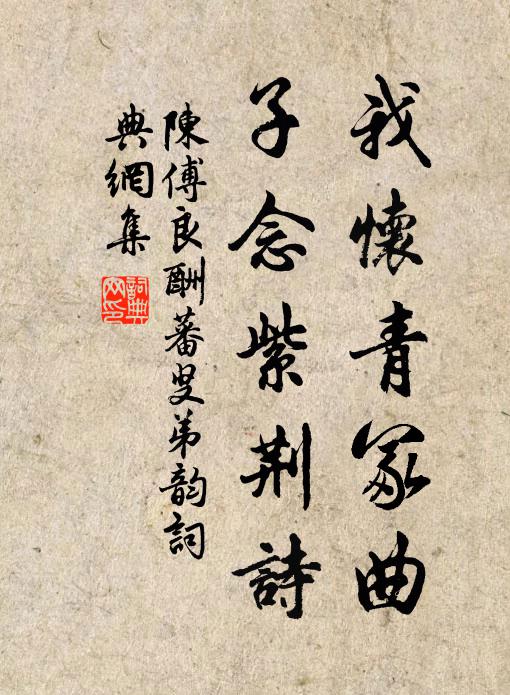 我懷青冢曲
子念紫荆詩
陳傅良酬蕃叟弟韵詞
典網集
詞典
网印